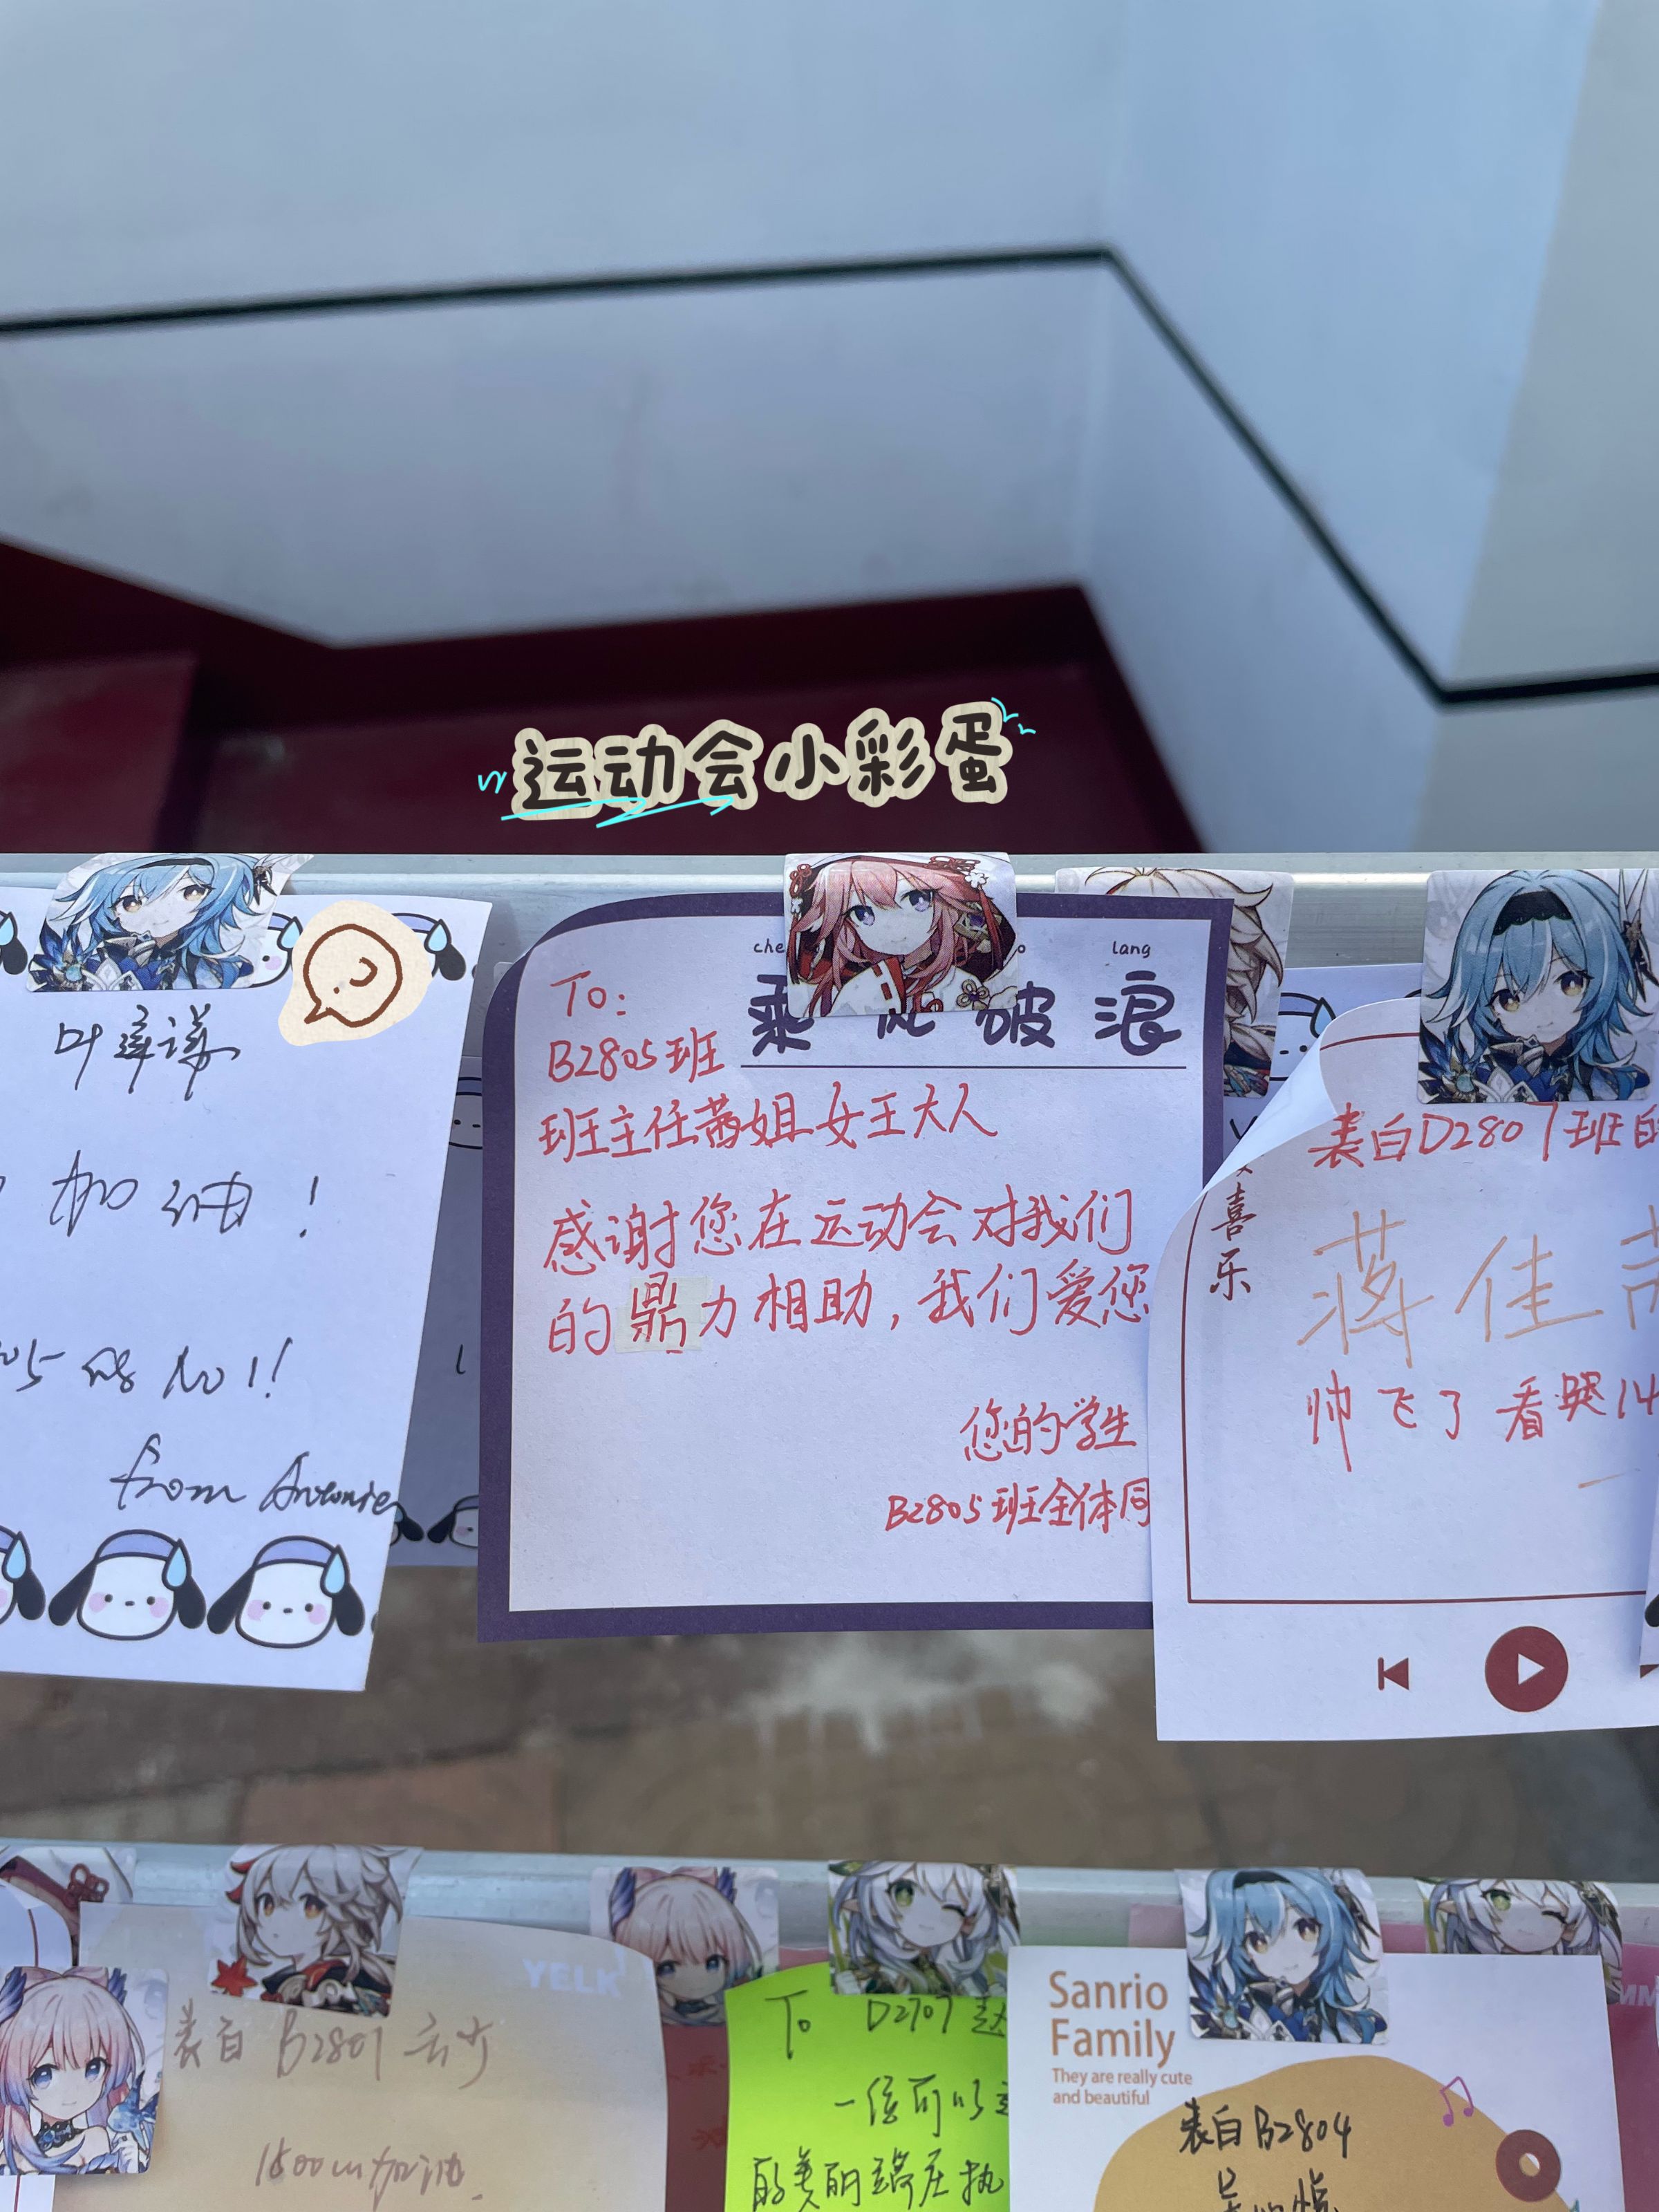 运动会小彩蛋
加油!
from Antonie
lang
乘 破浪
To:
B2805班
班主任茜姐女王大人
感谢您在运动会对我们
的鼎力相助,我们爱您
您的学生
B2805班全体同
喜
乐
表白D2807班的
蒋佳
帅飞了看哭14
YELK
表白B2807
1500m加油
To D2707
一位可以
的美丽端庄执
Sanrio
Family
They are really cute
and beautiful
表白B2804